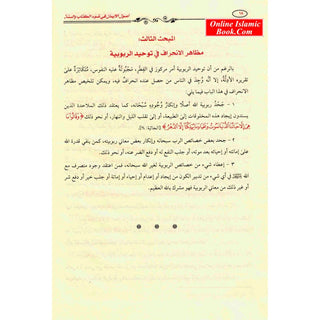 أصول الإيمان في ضوء الكتاب والسنة
Online Islamic
Book.Com
المبحث الثالث:
مظاهر الانحراف في توحيد الربوبية
بالرغم من أن توحيد الربوبية أمر مركوز في الفطر، مجبولة عليه النفوس، متكاثرة على
تقريره الأدلة، إلا أنه وجد في الناس من حصل عنده انحراف فيه، ويمكن تلخيص مظاهر
الانحراف في هذا الباب فيما يلي:
١ - جحد ربوبية الله أصلًا وإنكار وجوده سبحانه، كما يعتقد ذلك الملاحدة الذين
يسندون إيجاد هذه المخلوقات إلى الطبيعة، أو إلى تقلب الليل والنهار، أو نحو ذلك ﴿وَقَالُوا مَا
هِيَ إِلَّا حَيَاتُنَا الدُّنْيَا نَمُوتُ وَنَحْيَا وَمَا يُهْلِكُنَا إِلَّا الدَّهْرُ﴾ [الجاثية: ٢٤].
٢ - جحد بعض خصائص الرب سبحانه وإنكار بعض معاني ربوبيته، كمن ينفي قدرة الله
على إماتته أو إحيائه بعد موته، أو جلب النفع له أو دفع الضر عنه، أو نحو ذلك.
٣ - إعطاء شيء من خصائص الربوبية لغير الله سبحانه، فمن اعتقد وجود متصرف مع
الله في أي شيء من تدبير الكون من إيجاد أو إعدام أو إحياء أو إماتة أو جلب خير أو دفع شر
أو غير ذلك من معاني الربوبية فهو مشرك بالله العظيم.